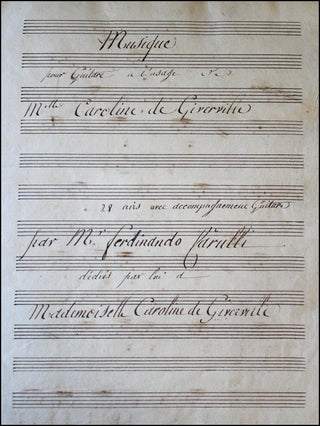 Musique
pour Guitare à l'usage de
Mlle Caroline de Giverville
28 airs avec accompagnement Guitare
par Mr. ferdinando Carulli
dédiés par lui à
Mademoiselle Caroline de Giverville